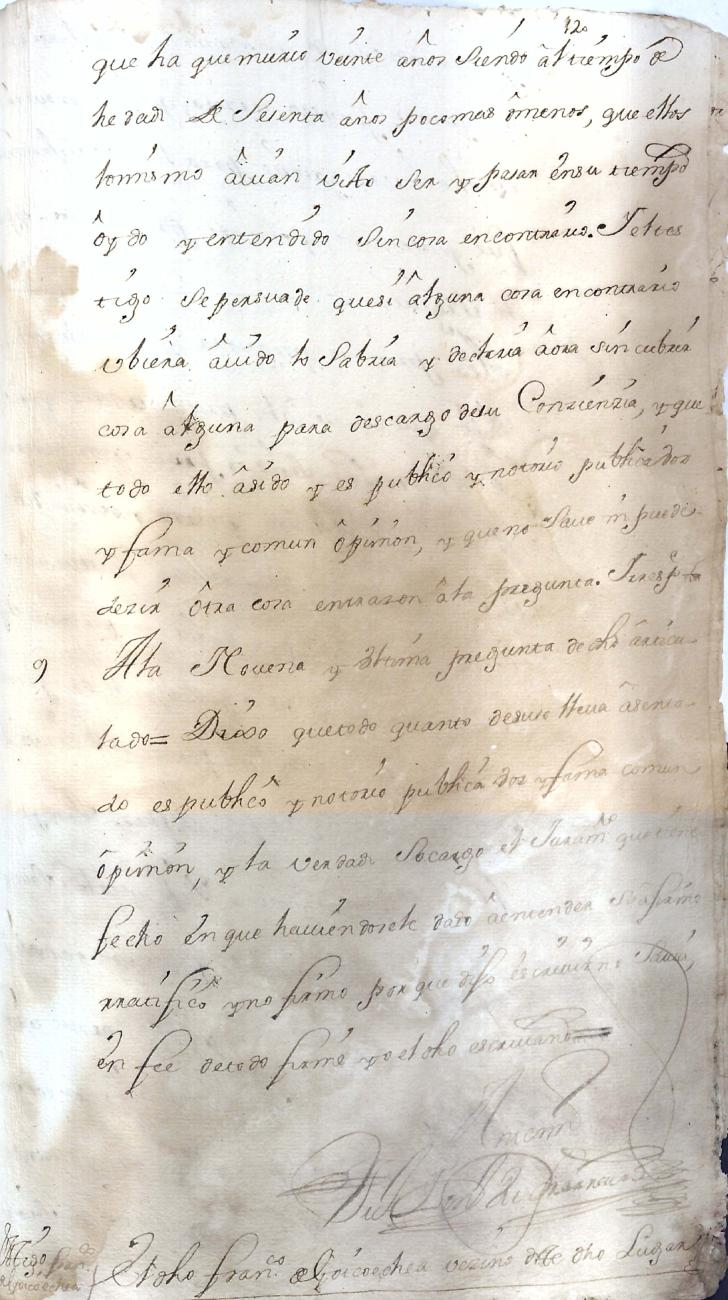 120
que ha que murio veinte años siendo al tiempo de
hedad de Sesenta años poco mas ô menos, que ellos
lo mismo âuian visto ser y pasar en su tiempo
ôydo y entendido sin cosa en contrario. Y el tes
tigo se persuade que si âlguna cosa en contrario
vbiera âuido lo Sabria y decl̃ria âora sin cubrir
cosa âlguna para descargo de su Conzienzia, y que
todo ello â sido y es publico y notorio publica voz
y fama y comun ôpinion, y que no Saue ni puede
dezir ôtra cosa en razon â la pregunta. Y resp.ta
9 A la Novena y vltima pregunta de dho ârticu
lado= Dixo que todo quanto de suso lleua âsenta
do es publico y notorio publica voz y fama comun
ôpinion, y la verdad So cargo el Juram.to que tiene
fecho en que hauiendosele dado â entender se afirmo
rratifico y no firmo por que dijo escreuir no Sauia,
en fee de todo firme yo el dho escriuano=
Ante mi
Ttigo fran.co
de Goicoechea
El dho fran.co de Goicoechea vezino de este dho Lugar